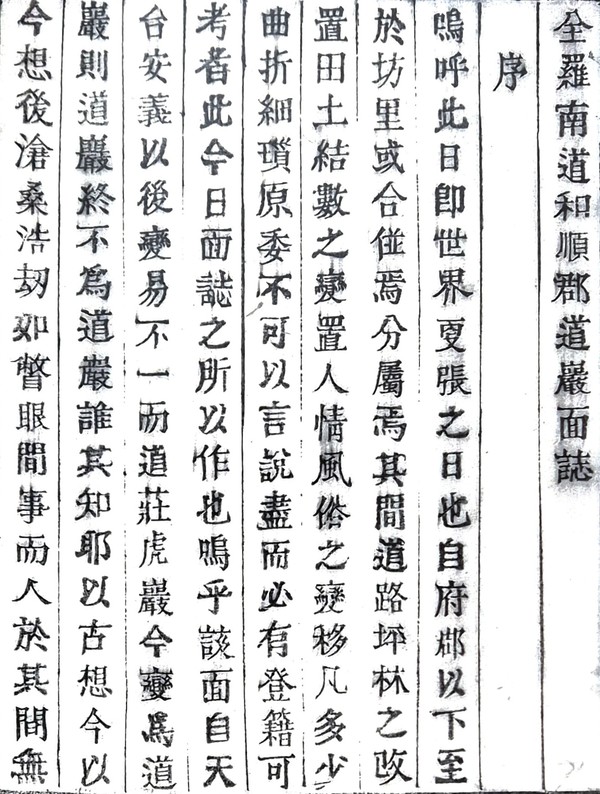 全羅南道和順郡道巖面誌
序
嗚呼此日卽世界更張之日也自府郡以下至
於坊里或合倂焉分屬焉其間道路坪林之改
置田土結數之變置人情風俗之變移凡多少
曲折細瑣原委不可以言說盡而必有登籍可
考者此今日面誌之所以作也嗚乎該面自天
台安義以後變易不一而道莊虎巖今變爲道
巖則道巖終不爲道巖誰其知耶以古想今以
今想後滄桑浩劫如瞥眼間事而人於其間無